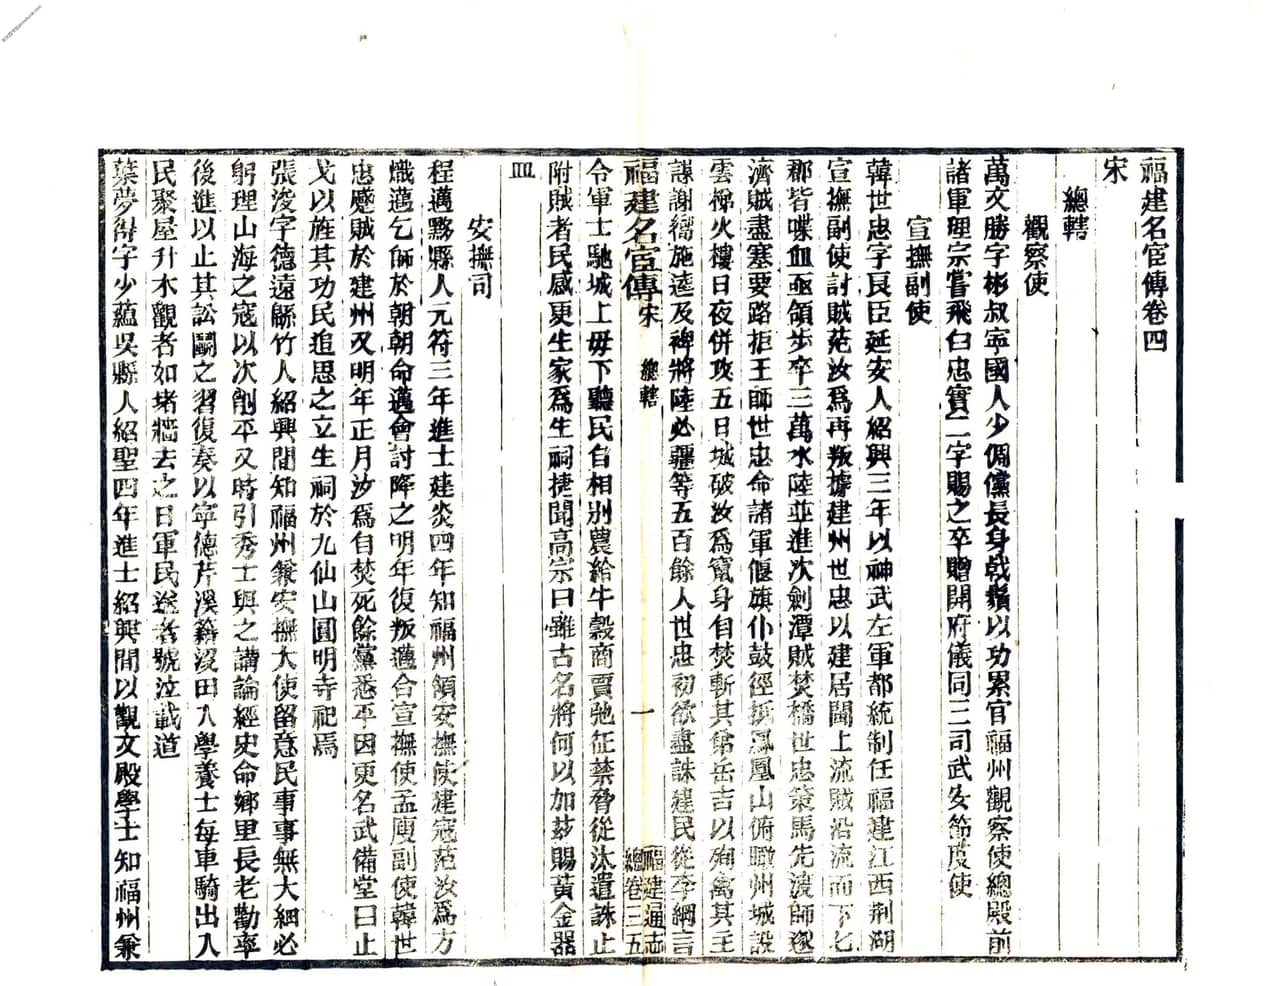 福建名宦傳卷四
宋
總轄
觀察使
萬文勝字彬叔寧國人少倜儻長身戟鬚以功累官福州觀察使總殿前
諸軍理宗嘗飛白忠實二字賜之卒贈開府儀同三司武安節度使
宣撫副使
韓世忠字良臣延安人紹興三年以神武左軍都統制任福建江西荆湖
宣撫副使討賊范汝爲再叛據建州世忠以建居閩上流賊沿流而下七
郡皆喋血亟領步卒三萬水陸並進次劍潭賊焚橋世忠策馬先渡師遂
濟賊盡塞要路拒王師世忠命諸軍偃旗仆鼓徑抵鳳凰山俯瞰州城設
雲梯火樓日夜併攻五日城破汝爲竄身自焚斬其弟岳吉以殉禽其主
謀謝嚮施逵及裨將陸必彊等五百餘人世忠初欲盡誅建民從李綱言
福建名宦傳 宋 總轄 一 福建通志總卷三五
令軍士馳城上毋下聽民自相別農給牛穀商賈弛征禁脅從汰遣誅止
附賊者民感更生家爲生祠捷聞高宗曰雖古名將何以加玆賜黃金器
皿
安撫司
程邁黟縣人元符三年進士建炎四年知福州領安撫使建寇范汝爲方
熾邁乞師於朝朝命邁會討降之明年復叛邁合宣撫使孟庾副使韓世
忠蹙賊於建州又明年正月汝爲自焚死餘黨悉平因更名武備堂曰止
戈以旌其功民追思之立生祠於九仙山圓明寺祀焉
張浚字德遠緜竹人紹興間知福州兼安撫大使留意民事事無大細必
躬理山海之寇以次削平又時引秀士與之講論經史命鄉里長老勸率
後進以止其訟鬭之習復奏以寧德芹溪籍沒田入學養士每車騎出入
民聚屋升木觀者如堵牆去之日軍民送者號泣載道
葉夢得字少蘊吳縣人紹聖四年進士紹興間以觀文殿學士知福州兼